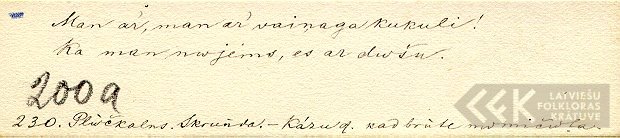 Man ař, man ař vaiņaga kukuli!
Ka man nujēms, es ar dušu.
200a
230. Plūčkalns. Skrunda. – Kāzu dz. kad brūte nomičota.
LATVIEŠU
FOLKLORAS
KRĀTUVE
LFK